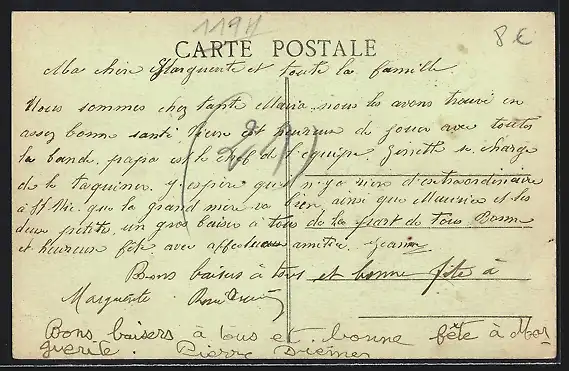 1194
8 €
CARTE POSTALE
(24)
Ma chère Marguerite et toute la famille.
Nous sommes chez tante Maria nous les avons trouvé en
assez bonne santé, Pierre est heureux de jouer avec toute
la bande, papa est le chef de l'équipe. Ginette se charge
de le taquiner. J'espère qu'il n'y a rien d'extraordinaire
à que la grand mère va bien, ainsi que Maurice et les
deux petites, un gros baiser à tous de la part de tous Bonne
et heureuse fête avec affectueuse amitié. Jeanne
Bons baisers à tous et bonne fête à
Marguerite.
Bons baisers à tous et bonne fête à Mar
guerite. Pierre